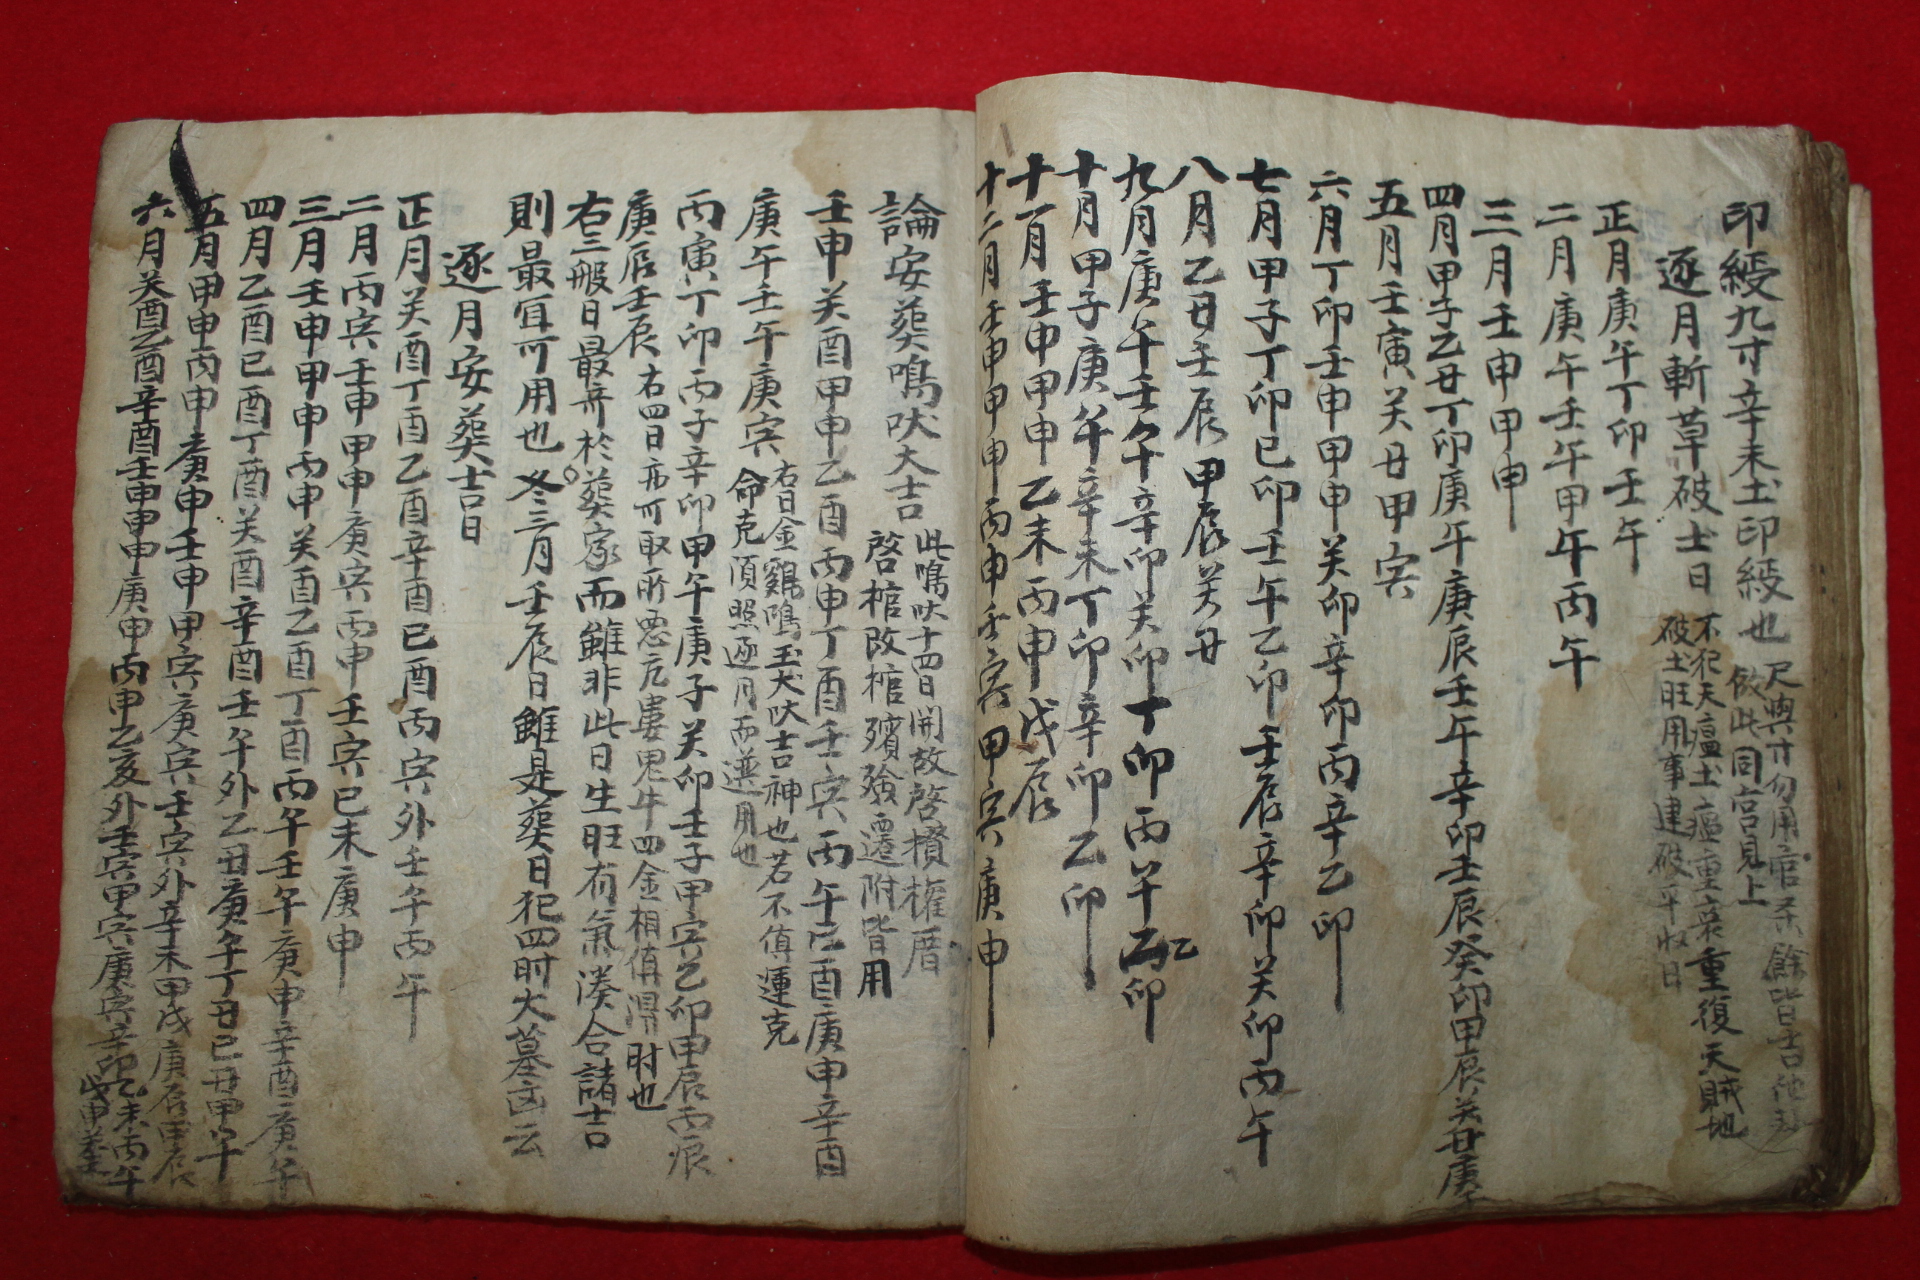 印綬九寸辛未土印綬也 尺與寸勿用官杀餘皆吉他
倣此同宮見上
逐月斬草破土日 不犯天瘟土瘟重喪重復天賊地
破土旺用事建破平收日
正月庚午丁卯壬午
二月庚午壬午甲午丙午
三月壬申甲申
四月甲子乙丑丁卯庚午庚辰壬午辛卯壬辰癸卯甲辰癸丑庚子
五月壬寅癸丑甲寅
六月丁卯壬申甲申癸卯辛卯丙辛乙卯
七月甲子丁卯己卯壬午乙卯壬辰辛卯癸卯丙午
八月乙丑壬辰甲辰癸丑
九月庚午壬午辛卯癸卯丁卯丙午乙卯
十月甲子庚午辛未丁卯辛卯乙卯
十一月壬申甲申乙未丙申戊辰
十二月壬申甲申丙申壬寅甲寅庚申
論安葬鳴吠大吉 此鳴吠十四日開故啓攢權厝
啓棺改棺殯殮遷附皆用
壬申癸酉甲申乙酉丙申丁酉壬寅丙午己酉庚申辛酉
庚午壬午庚寅 右日金鷄鳴玉犬吠吉神也若不值運克
命克須照逐月而選用也
丙寅丁卯丙子辛卯甲午庚子癸卯壬子甲寅乙卯甲辰丙辰
庚辰壬辰 右四日亦可取所忌亢婁鬼牛四金相值淂時也
右三般日最奇於葬家而雖非此日生旺有氣湊合諸吉
則最宜可用也冬三月壬辰日雖是葬日犯四時大墓凶云
逐月安葬吉日
正月癸酉丁酉乙酉辛酉己酉丙寅外壬午丙午
二月丙寅壬申甲申庚寅丙申壬寅己未庚申
三月壬申甲申丙申癸酉乙酉丁酉丙午壬午庚申辛酉庚午
四月乙酉己酉丁酉癸酉辛酉壬午外乙丑庚午丁丑己丑甲午
五月甲申丙申庚申壬申甲寅庚寅壬寅外辛未甲戌庚辰甲辰
六月癸酉乙酉辛酉壬申甲申庚申丙申乙亥外壬寅甲寅庚寅辛卯乙未丙午